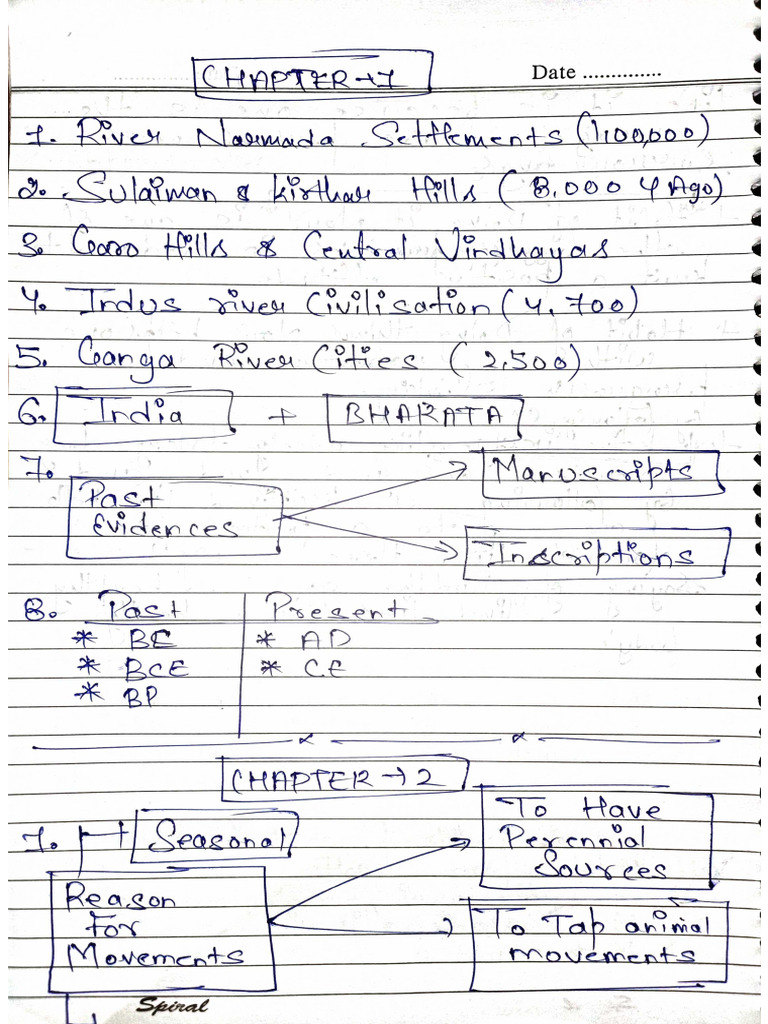 CHAPTER → 1
Date ..............
1. River Narmada Settlements (1,00,000)
2. Sulaiman & kirthar Hills (8.000 Y Ago)
3. Garo Hills & Central Vindhayas
4. Indus river Civilisation (4.700)
5. Ganga River Cities (2,500)
6. India + BHARATA
7.
Past Evidences
Manuscripts
Inscriptions
8. Past Present
* BE * AD
* BCE * CE
* BP
CHAPTER → 2
1. Seasonal
Reason
For
Movements
To Have
Perennial
Sources
To Tap animal
movements
Spiral